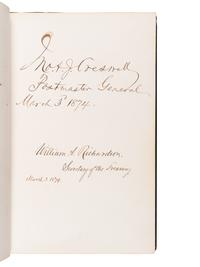 Jno. A. J. Creswell
Postmaster General
March 3d 1874.
William A. Richardson,
Secretary of the Treasury
March 3. 1874